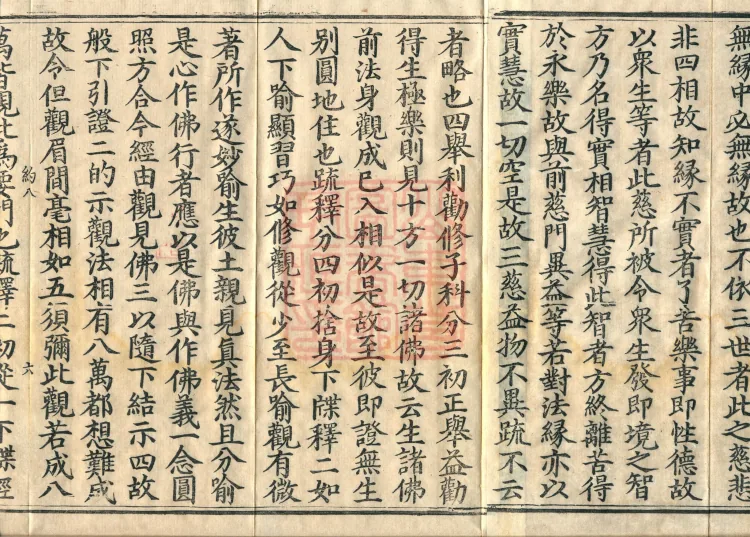 無縁中必無縁故也不依三世者此之慈悲
非四相故知縁不實者了苦樂事即性德故
以衆生等者此慈所被令衆生發即境之智
方乃名得實相智慧得此智者方終離苦得
於永樂故與前慈門異益等若對法縁亦以
實慧故一切空是故三慈益物不異疏不云
者略也四舉利勸修子科分三初正舉益勸
得生極樂則見十方一切諸佛故云生諸佛
前法身觀成已入相似是故至彼即證無生
別圓地住也疏釋分四初捨身下牒釋二如
人下喻顯習巧如修觀從少至長喻觀有微
著所作遂妙喻生彼土親見真法然且分喻
是心作佛行者應以是佛與作佛義一念圓
照方合今經由觀見佛三以隨下結示四故
般下引證二的示觀法相有八萬都想難成
故令但觀眉間毫相如五須彌此觀若成八
約八
六
萬皆現此為要門也疏釋二初從一下牒經